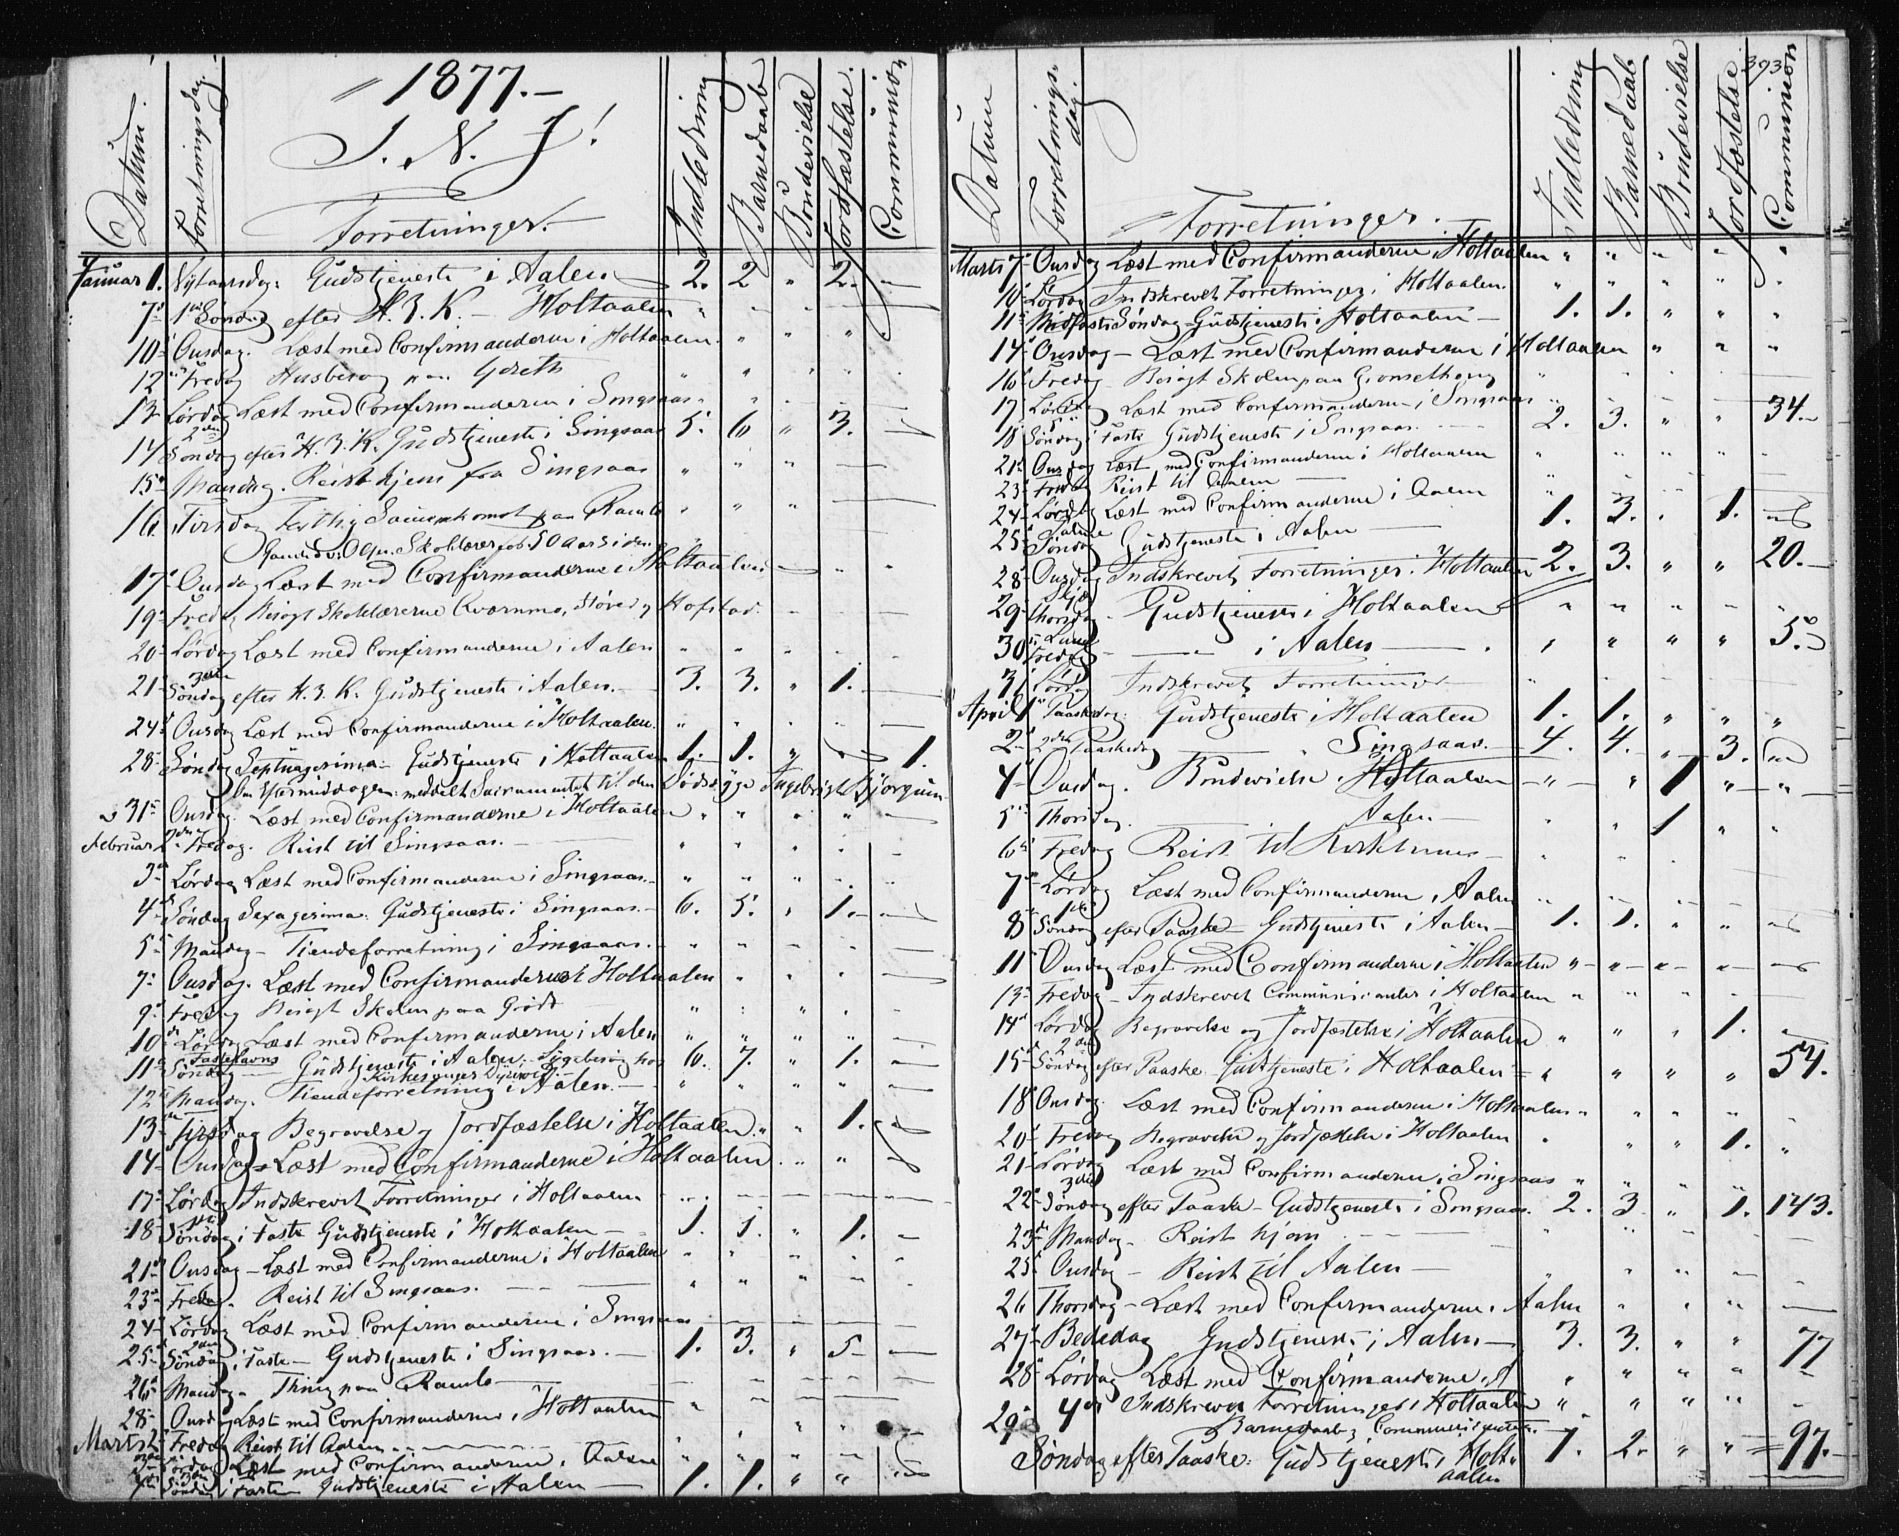 1877.
I. N. J!
Datum. Forretningsdag. Forretninger. Indledning Barnedaab Brudevielse Jordfæstelse. Communion
Januar 1. Nytaarsdag. Gudstjeneste i Aalen 2. 2 " 2.
7de 1ste Søndag efter H. 3. K. - Holtaalen
10 Onsdag. Læst med Confirmanderne i Holtaalen
12 Fredag Husbesøg paa
13 Lørdag Læst med Confirmanderne i Singsaas
14 2den Søndag efter H. 3. K. Gudstjeneste i Singsaas 5. 6 " 3.
15 Mandag. Reist hjem fra Singsaas
16 Tirsdag Festlig Sammenkomst paa Ramlo
Skolelærer 50 Aar siden
17 Onsdag Læst med Confirmanderne i Holtaalen
19 Fredag Besøgt Skolelærerne Kværnmo, Støred og Hofstad.
20 Lørdag Læst med Confirmanderne i Aalen
21 3die Søndag efter H. 3. K. Gudstjeneste i Aalen. 3. 3. " 1.
24 Onsdag Læst med Confirmanderne i Holtaalen.
28 Søndag Septuagesima - Gudstjeneste i Holtaalen 1. 1. " 1.
Om Eftermiddagen meddelt Sacramentet til den Dødssyge Ingebrigt
31 Onsdag. Læst med Confirmanderne i Holtaalen
Februar 2den Fredag. Reist til Singsaas.
3 Lørdag Læst med Confirmanderne i Singsaas.
4 Søndag Sexagesima. Gudstjeneste i Singsaas. 6. 5. " 1.
5 Mandag - Tiendeforretning i Singsaas.
7 Onsdag. Læst med Confirmanderne i Holtaalen
9 Fredag Besøgt Skolen paa Grødt
10 Lørdag Læst med Confirmanderne i Aalen
11 Fastelavns Søndag Gudstjeneste i Aalen. Sygebesøg hos 6. 7. " 1.
Kirkesanger
12 Mandag. Tiendeforretning i Aalen.
13 Tirsdag Begravelse og Jordfæstelse i Holtaalen. 1.
14 Onsdag Læst med Confirmanderne i Holtaalen
17 Lørdag Indskrevet Forretninger i Holtaalen
18 1ste Søndag i Faste Gudstjeneste i Holtaalen 1. 1. " 1.
21 Onsdag - Læst med Confirmanderne i Holtaalen
23 Fredag. Reist til Singsaas.
24 Lørdag Læst med Confirmanderne i Singsaas
25 2den Søndag i Faste - Gudstjeneste i Singsaas. 1. 3. " 5
26 Mandag - Thing paa Ramlo
28 Onsdag Læst med Confirmanderne i Holtaalen
Marts 2 Fredag Reist til Aalen
3 Lørdag Læst med Confirmanderne i Aalen
4 3die Søndag i Faste Gudstjeneste i Aalen 1. 1. " "
393
Datum Forretningsdag. Forretninger. Indledning Barnedaab Brudevielse Jordfæstelse Communion
Marts 7 Onsdag Læst med Confirmanderne i Holtaalen
10 Lørdag Indskrevet Forretninger i Holtaalen.
11 Midfaste Søndag - Gudstjeneste i Holtaalen 1. 1. " " "
14 Onsdag - Læst med Confirmanderne i Holtaalen
16 Fredag - Besøgt Skolen paa
17 Lørdag Læst med Confirmanderne i Singsaas
18 5te Søndag i Faste Gudstjeneste i Singsaas. 2. 3. " " 34.
21 Onsdag Læst med Confirmanderne i Holtaalen
23 Fredag Reist til Aalen
24 Lørdag Læst med Confirmanderne i Aalen
25 Palme Søndag Gudstjeneste i Aalen 1. 3. 1.
28 Onsdag Indskrevet Forretninger i Holtaalen
29 Skjær Thorsdag - Gudstjeneste i Holtaalen 2. 3. " " 20.
30 Lang Fredag i Aalen 50
31 Lørdag Indskrevet Forretninger
April 1 Paaskedag. Gudstjeneste i Holtaalen 1. 1. " " "
2 2den Paaskedag " Singsaas. 4. 4. " 3.
4 Onsdag. Brudevielse i Holtaalen " " 1 " "
5 Thorsdag. Aalen 1
6 Fredag Reist til
7 Lørdag Læst med Confirmanderne i Aalen
8 1ste Søndag efter Paaske - Gudstjeneste i Aalen 1. 1.
11 Onsdag Læst med Confirmanderne i Holtaalen
13 Fredag - Indskrevet Communicanter i Holtaalen
14 Lørdag Begravelse og Jordfæstelse i Holtaalen " " " 1.
15 2den Søndag efter Paaske. Gudstjeneste i Holtaalen " " " " 54.
18 Onsdag. Læst med Confirmanderne i Holtaalen
20 Fredag Begravelse og Jordfæstelse i Holtaalen 1.
21 Lørdag Læst med Confirmanderne i Singsaas
22 3die Søndag efter Paaske - Gudstjeneste i Singsaas. 2. 3 " 1. 143.
23 Mandag - Reist hjem
25 Onsdag - Reist til Aalen
26 Thorsdag - Læst med Confirmanderne i Aalen
27 Bededag Gudstjeneste i Aalen 3. 3. " " 77
28 Lørdag Læst med Confirmanderne i A
Indskrevet Forretninger i Holtaalen
Barnedaab og Communicanter.
29 4de Søndag efter Paaske: Gudstjeneste i Holtaalen 1. 2. " " 97.